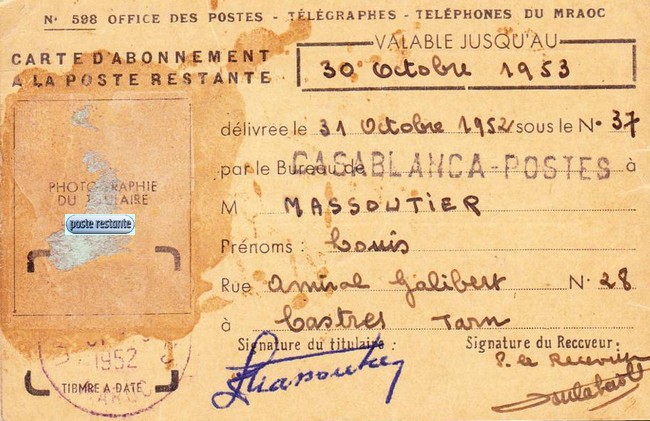 N° 508 OFFICE DES POSTES - TÉLÉGRAPHES - TÉLÉPHONES DU MRAOC
CARTE D'ABONNEMENT
A LA POSTE RESTANTE
VALABLE JUSQU'AU
30 Octobre 1953
délivrée le 31 Octobre 1952 sous le N° 37
par le Bureau de CASABLANCA-POSTES à
M MASSOUTIER
Prénoms : Louis
Rue Amiral Galibert N° 28
à Castres Tarn
PHOTOGRAPHIE
DU TITULAIRE
poste restante
Signature du titulaire :
Signature du Recveur :
P. le Receveur
1952
TIBMRE A DATE